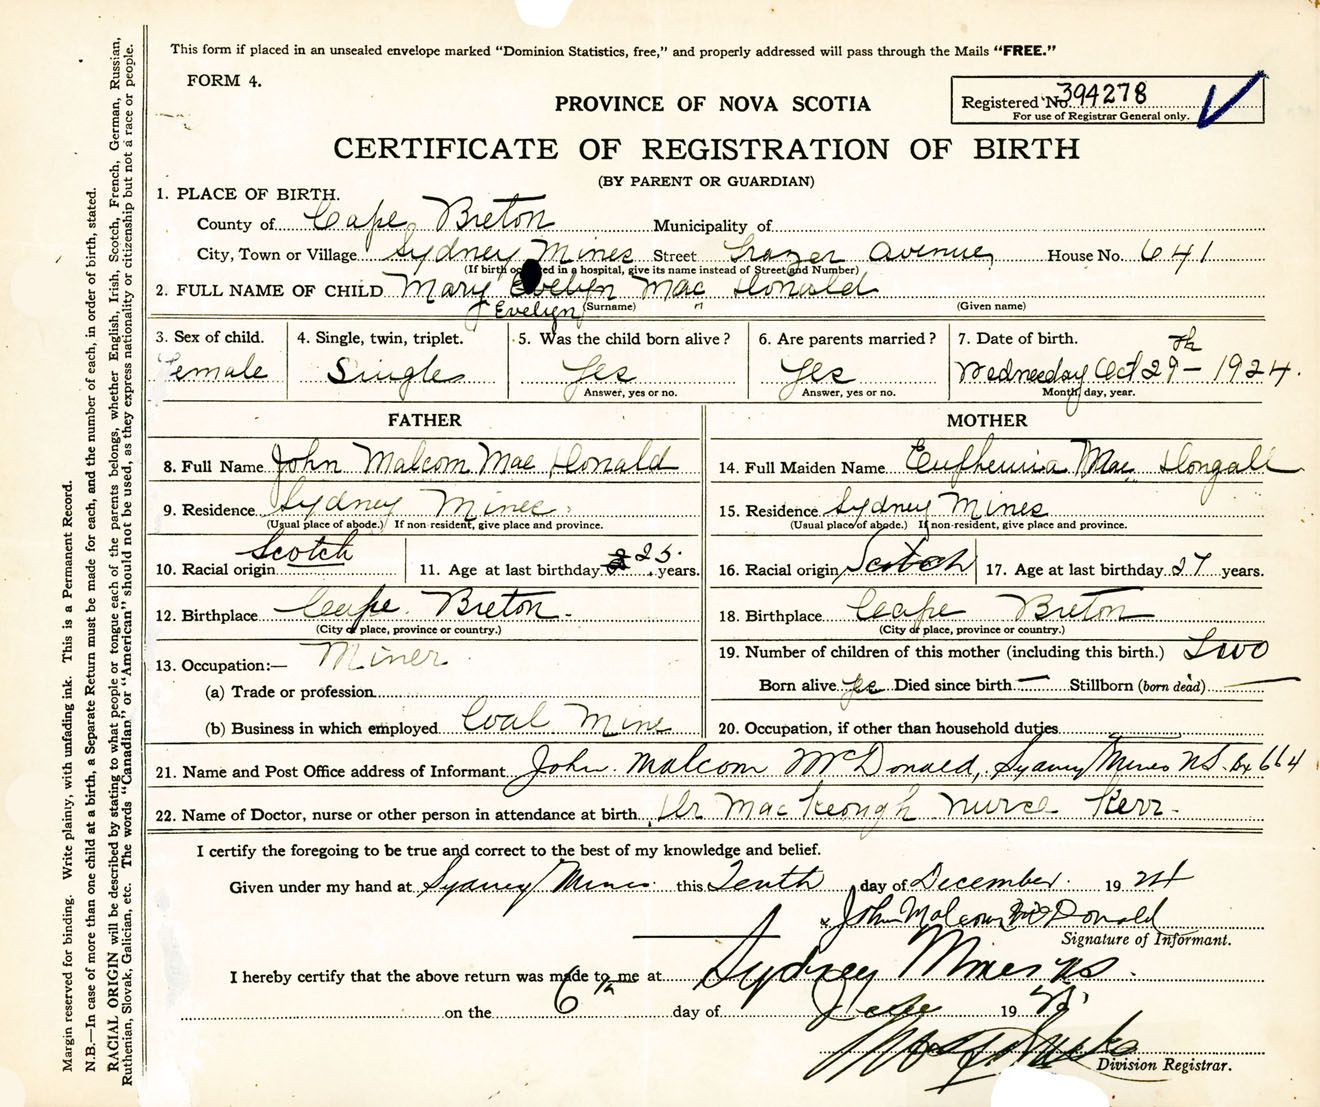 This form if placed in an unsealed envelope marked "Dominion Statistics, free," and properly addressed will pass through the Mails "FREE."
FORM 4.
Registered No. 394278
For use of Registrar General only.
PROVINCE OF NOVA SCOTIA
CERTIFICATE OF REGISTRATION OF BIRTH
(BY PARENT OR GUARDIAN)
1. PLACE OF BIRTH.
County of Cape Breton Municipality of
City, Town or Village Sydney Mines Street Frazer Avenue, House No. 641
(If birth occurred in a hospital, give its name instead of Street and Number)
2. FULL NAME OF CHILD Mary Evelyn Mac Donald
Evelyn (Surname) (Given name)
3. Sex of child. Female
4. Single, twin, triplet. Single
5. Was the child born alive? Yes
Answer, yes or no.
6. Are parents married? Yes
Answer, yes or no.
7. Date of birth. Wednesday Oct 29th - 1924.
Month, day, year.
FATHER
8. Full Name John Malcom Mac Donald
9. Residence Sydney Mines
(Usual place of abode.) If non-resident, give place and province.
10. Racial origin Scotch 11. Age at last birthday 25. years.
12. Birthplace Cape Breton.
(City or place, province or country.)
13. Occupation:— Miner
(a) Trade or profession
(b) Business in which employed Coal Mine
MOTHER
14. Full Maiden Name Eufhemia Mac Dongall
15. Residence Sydney Mines
(Usual place of abode.) If non-resident, give place and province.
16. Racial origin Scotch 17. Age at last birthday 27 years.
18. Birthplace Cape Breton
(City or place, province or country.)
19. Number of children of this mother (including this birth.) Two
Born alive yes Died since birth — Stillborn (born dead) —
20. Occupation, if other than household duties
21. Name and Post Office address of Informant John Malcom McDonald, Sydney Mines NS. Bx 664
22. Name of Doctor, nurse or other person in attendance at birth Dr MacKeough nurse Kerr.
I certify the foregoing to be true and correct to the best of my knowledge and belief.
Given under my hand at Sydney Mines this Tenth day of December. 1924
John Malcom McDonald
Signature of Informant.
I hereby certify that the above return was made to me at Sydney Mines NS.
on the 6th day of 19
Division Registrar.
Margin reserved for binding. Write plainly, with unfading ink. This is a Permanent Record.
N.B.—In case of more than one child at a birth, a Separate Return must be made for each, and the number of each, in order of birth, stated.
RACIAL ORIGIN will be described by stating to what people or tongue each of the parents belongs, whether English, Irish, Scotch, French, German, Russian,
Ruthenian, Slovak, Galician, etc. The words "Canadian" or "American" should not be used, as they express nationality or citizenship but not a race or people.